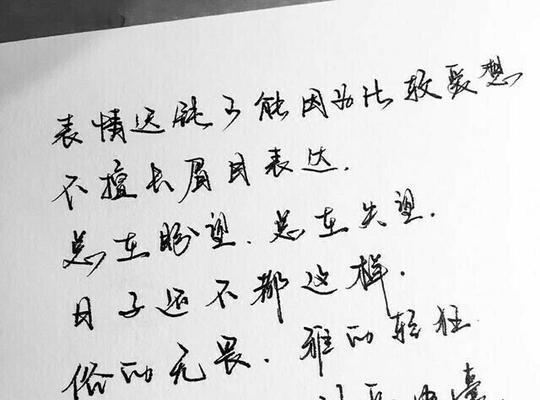 表情迟钝可能因为比较爱想
不擅长眉目表达.
总在盼望、总在失望.
日子还不都这样.
俗的无畏、雅的轻狂